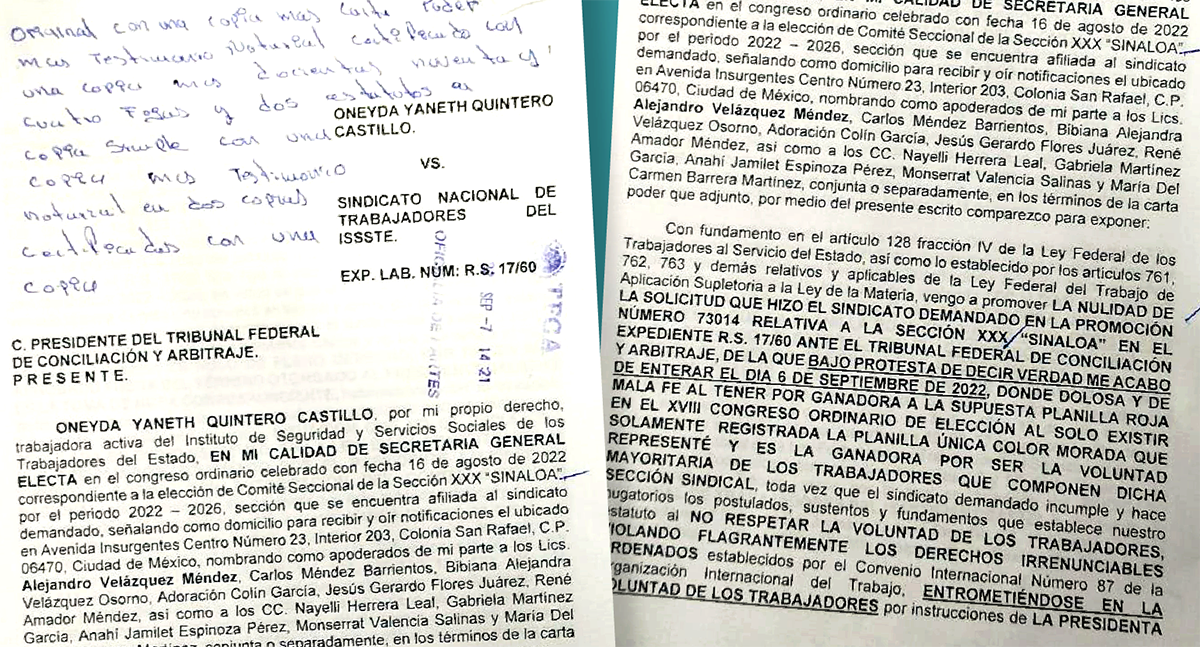 Original con una copia mas carta Poder
mas Testimonio Notarial certificado con
una copia mas docientas noventa y
cuatro Fojas y dos estatutos en
copia simple con una
copia mas Testimonio
notarial en dos copias
certificadas con una
copia
ONEYDA YANETH QUINTERO
CASTILLO.
VS.
SINDICATO NACIONAL DE
TRABAJADORES DEL
ISSSTE.
EXP. LAB. NÚM: R.S. 17/60
TFCA
SEP -7 14 21
OFICIALIA DE PARTES
C. PRESIDENTE DEL TRIBUNAL FEDERAL
DE CONCILIACIÓN Y ARBITRAJE.
P R E S E N T E.
ONEYDA YANETH QUINTERO CASTILLO, por mi propio derecho,
trabajadora activa del Instituto de Seguridad y Servicios Sociales de los
Trabajadores del Estado, EN MI CALIDAD DE SECRETARIA GENERAL
ELECTA en el congreso ordinario celebrado con fecha 16 de agosto de 2022
correspondiente a la elección de Comité Seccional de la Sección XXX "SINALOA"
por el periodo 2022 – 2026, sección que se encuentra afiliada al sindicato
demandado, señalando como domicilio para recibir y oír notificaciones el ubicado
en Avenida Insurgentes Centro Número 23, Interior 203, Colonia San Rafael, C.P.
06470, Ciudad de México, nombrando como apoderados de mi parte a los Lics.
Alejandro Velázquez Méndez, Carlos Méndez Barrientos, Bibiana Alejandra
Velázquez Osorno, Adoración Colín García, Jesús Gerardo Flores Juárez, René
Amador Méndez, así como a los CC. Nayelli Herrera Leal, Gabriela Martínez
García, Anahí Jamilet Espinoza Pérez, Monserrat Valencia Salinas y María Del
Carmen Barrera Martínez, conjunta o separadamente, en los términos de la carta
EN MI CALIDAD DE SECRETARIA GENERAL
ELECTA en el congreso ordinario celebrado con fecha 16 de agosto de 2022
correspondiente a la elección de Comité Seccional de la Sección XXX "SINALOA"
por el periodo 2022 – 2026, sección que se encuentra afiliada al sindicato
demandado, señalando como domicilio para recibir y oír notificaciones el ubicado
en Avenida Insurgentes Centro Número 23, Interior 203, Colonia San Rafael, C.P.
06470, Ciudad de México, nombrando como apoderados de mi parte a los Lics.
Alejandro Velázquez Méndez, Carlos Méndez Barrientos, Bibiana Alejandra
Velázquez Osorno, Adoración Colín García, Jesús Gerardo Flores Juárez, René
Amador Méndez, así como a los CC. Nayelli Herrera Leal, Gabriela Martínez
García, Anahí Jamilet Espinoza Pérez, Monserrat Valencia Salinas y María Del
Carmen Barrera Martínez, conjunta o separadamente, en los términos de la carta
poder que adjunto, por medio del presente escrito comparezco para exponer:
Con fundamento en el artículo 128 fracción IV de la Ley Federal de los
Trabajadores al Servicio del Estado, así como lo establecido por los artículos 761,
762, 763 y demás relativos y aplicables de la Ley Federal del Trabajo de
Aplicación Supletoria a la Ley de la Materia, vengo a promover LA NULIDAD DE
LA SOLICITUD QUE HIZO EL SINDICATO DEMANDADO EN LA PROMOCIÓN
NÚMERO 73014 RELATIVA A LA SECCIÓN XXX "SINALOA" EN EL
EXPEDIENTE R.S. 17/60 ANTE EL TRIBUNAL FEDERAL DE CONCILIACIÓN
Y ARBITRAJE, DE LA QUE BAJO PROTESTA DE DECIR VERDAD ME ACABO
DE ENTERAR EL DIA 6 DE SEPTIEMBRE DE 2022, DONDE DOLOSA Y DE
MALA FE AL TENER POR GANADORA A LA SUPUESTA PLANILLA ROJA
EN EL XVIII CONGRESO ORDINARIO DE ELECCIÓN AL SOLO EXISTIR
SOLAMENTE REGISTRADA LA PLANILLA ÚNICA COLOR MORADA QUE
REPRESENTÉ Y ES LA GANADORA POR SER LA VOLUNTAD
MAYORITARIA DE LOS TRABAJADORES QUE COMPONEN DICHA
SECCIÓN SINDICAL, toda vez que el sindicato demandado incumple y hace
nugatorios los postulados, sustentos y fundamentos que establece nuestro
estatuto al NO RESPETAR LA VOLUNTAD DE LOS TRABAJADORES,
VIOLANDO FLAGRANTEMENTE LOS DERECHOS IRRENUNCIABLES
ORDENADOS establecidos por el Convenio Internacional Número 87 de la
Organización Internacional del Trabajo, ENTROMETIÉNDOSE EN LA
VOLUNTAD DE LOS TRABAJADORES por instrucciones de LA PRESIDENTA